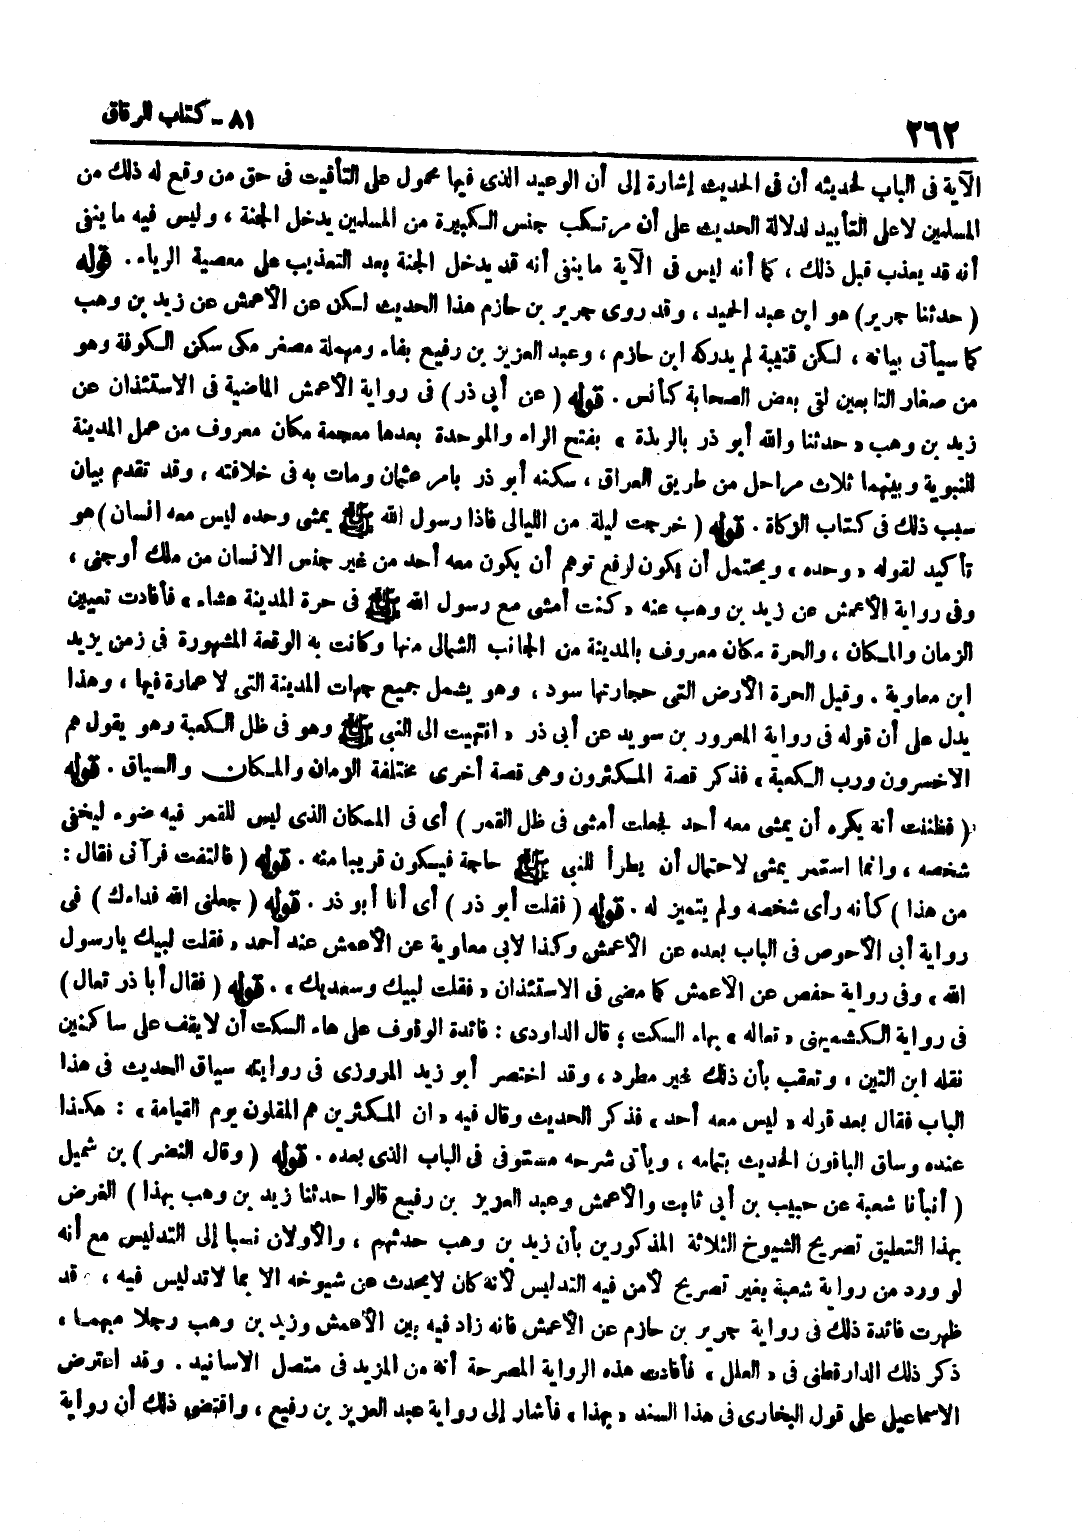 ٢٦٢
٨١ - كتاب الرقاق
الآية فى الباب لحديثه أن فى الحديث إشارة إلى أن الوعيد الذى فيها محمول على التأقيت فى حق من وقع له ذلك من
المسلمين لا على التأبيد لدلالة الحديث على أن مرتكب جنس الكبيرة من المسلمين يدخل الجنة ، وليس فيه ما ينفى
أنه قد يعذب قبل ذلك ، كما أنه ليس فى الآية ما ينفى أنه قد يدخل الجنة بعد التعذيب على معصية الرياء . قوله
( حدثنا جرير ) هو ابن عبد الحميد ، وقد روى جرير بن حازم هذا الحديث لكن عن الأعمش عن زيد بن وهب
كما سيأتى بيانه ، لكن قتيبة لم يدركه ابن حازم ، وعبد العزيز بن رفيع بفاء ومهملة مصغر مكى سكن الكوفة وهو
من صغار التابعين لقى بعض الصحابة كأنس . قوله ( عن أبي ذر ) فى رواية الأعمش الماضية فى الاستئذان عن
زيد بن وهب « حدثنا والله أبو ذر بالربذة » بفتح الراء والموحدة بعدها معجمة مكان معروف من عمل المدينة
النبوية وبينهما ثلاث مراحل من طريق العراق ، سكنه أبو ذر بامر عثمان ومات به فى خلافته ، وقد تقدم بيان
سبب ذلك فى كتاب الزكاة . قوله ( خرجت ليلة من الليالى فاذا رسول الله ﷺ يمشى وحده ليس معه انسان ) هو
تأكيد لقوله « وحده » ويحتمل أن يكون لرفع توهم أن يكون معه أحد من غير جنس الانسان من ملك أو جنى ،
وفى رواية الأعمش عن زيد بن وهب عنه « كنت أمشى مع رسول الله ﷺ فى حرة المدينة عشاء » فأفادت تعيين
الزمان والمكان ، والحرة مكان معروف بالمدينة من الجانب الشمالى منها وكانت به الوقعة المشهورة فى زمن يزيد
ابن معاوية . وقيل الحرة الأرض التى حجارتها سود ، وهو يشمل جميع جهات المدينة التى لا عمارة فيها ، وهذا
يدل على أن قوله فى رواية المعرور بن سويد عن أبى ذر « انتهيت الى النبى ﷺ وهو فى ظل الكعبة وهو يقول هم
الاخسرون ورب الكعبة » فذكر قصة المكثرون وهى قصة أخرى مختلفة الزمان والمكان والسياق . قوله
( فظننت أنه يكره أن يمشى معه أحد فجعلت أمشى فى ظل القمر ) أى فى المكان الذى ليس للقمر فيه ضوء ليخفى
شخصه ، وانما استمر يمشى لاحتمال أن يطرأ للنبى ﷺ حاجة فيكون قريبا منه . قوله ( فالتفت فرآنى فقال :
من هذا ) كأنه رأى شخصه ولم يتميز له . قوله ( فقلت أبو ذر ) أى أنا أبو ذر . قوله ( جعلنى الله فداءك ) فى
رواية أبى الأحوص فى الباب بعده عن الأعمش وكذا لابى معاوية عن الأعمش عند أحمد « فقلت لبيك يا رسول
الله » وفى رواية حفص عن الأعمش كما مضى فى الاستئذان « فقلت لبيك وسعديك » . قوله ( فقال أبا ذر تعال )
فى رواية الكشميهنى « تعاله » بهاء السكت ؛ قال الداودى : فائدة الوقوف على هاء السكت أن لا يقف على ساكنين
نقله ابن التين ، وتعقب بأن ذلك غير مطرد ، وقد اختصر أبو زيد المروزى فى روايته سياق الحديث فى هذا
الباب فقال بعد قوله « ليس معه أحد » فذكر الحديث وقال فيه « ان المكثرين هم المقلون يوم القيامة » : هكذا
عنده وساق الباقون الحديث بتمامه ، ويأتى شرحه مستوفى فى الباب الذى بعده . قوله ( وقال النضر ) بن شميل
( أنبأنا شعبة عن حبيب بن أبى ثابت والأعمش وعبد العزيز بن رفيع قالوا حدثنا زيد بن وهب بهذا ) الغرض
بهذا التعليق تصريح الشيوخ الثلاثة المذكورين بأن زيد بن وهب حدثهم ، والأولان نسبا إلى التدليس مع أنه
لو ورد من رواية شعبة بغير تصريح لأمن فيه التدليس لأنه كان لا يحدث عن شيوخه الا بما لا تدليس فيه ، قد
ظهرت فائدة ذلك فى رواية جرير بن حازم عن الأعمش فانه زاد فيه بين الأعمش وزيد بن وهب رجلا مبهما ،
ذكر ذلك الدارقطنى فى « العلل » فأفادت هذه الرواية المصرحة أنه من المزيد فى متصل الاسانيد . وقد اعترض
الاسماعيلى على قول البخارى فى هذا السند « بهذا » فأشار إلى رواية عبد العزيز بن رفيع ، واقتضى ذلك أن رواية